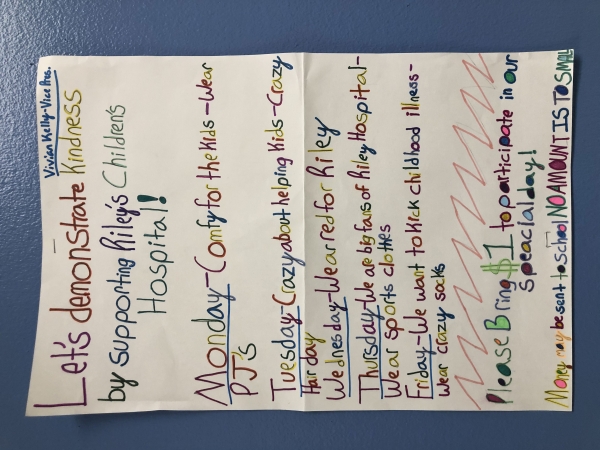 Vivian Kelly-Vice Pres.
Let's demonstrate Kindness
by supporting Riley's Children's
Hospital!
Monday-Comfy for the Kids-Wear
PJ's
Tuesday-Crazy about helping Kids-Crazy
Hair day
Wednesday-We are red for Riley
Thursday-We are big fans of Riley Hospital-
Wear sports clothes
Friday-We want to Kick childhood illness-
Wear crazy socks
Please Bring $1 to participate in our
speacial day!
Money may be sent to School NO AMOUNT IS TO SMALL